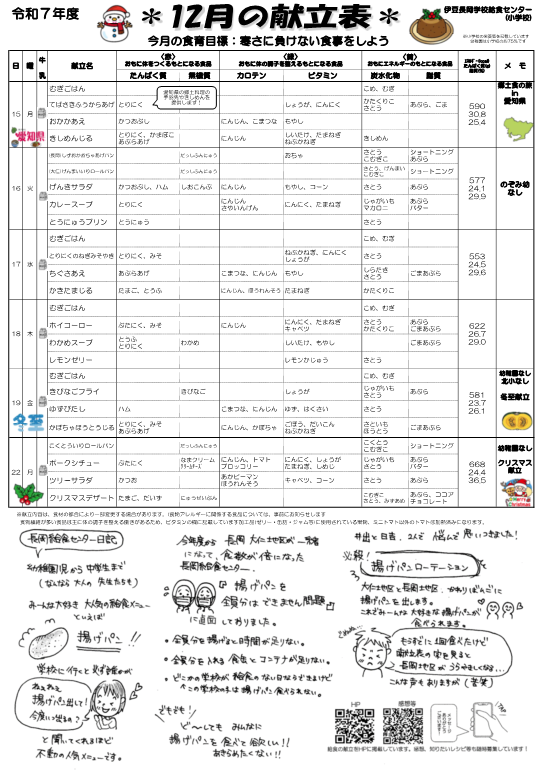 令和7年度
*12月の献立表*
伊豆長岡学校給食センター
(小学校)
今月の食育目標：寒さに負けない食事をしよう
日 曜 牛乳 献立名 おもに体をつくるもとになる食品 おもに体の調子を整えるもとになる食品 おもにエネルギーのもとになる食品 メモ
たんぱく質 無機質 カロテン ビタミン 炭水化物 脂質
15 月
むぎごはん こめ、むぎ
てばさきふうからあげ とりにく しょうが、にんにく かたくりこ さとう あぶら、ごま
おかかあえ かつおぶし にんじん、こまつな もやし
きしめんじる とりにく、かまぼこ あぶらあげ にんじん しいたけ、たまねぎ ねぶかねぎ きしめん
愛知県の郷土料理の手羽先やきしめんを提供します！
590
30.8
25.4
郷土食の旅
in
愛知県
愛知県
16 火
おちゃ さとう こむぎこ ショートニング あぶら
だっしふんにゅう
げんきサラダ かつおぶし、ハム しおこんぶ にんじん もやし、コーン さとう あぶら
カレースープ とりにく にんじん さやいんげん にんにく、たまねぎ じゃがいも マカロニ あぶら バター
とうにゅうプリン とうにゅう さとう
577
24.1
29.9
のぞみ幼
なし
17 水
むぎごはん こめ、むぎ
とりにくのねぎみそやき とりにく、みそ ねぶかねぎ、にんにく しょうが さとう
ちぐさあえ あぶらあげ こまつな、にんじん もやし しらたき さとう ごまあぶら
かきたまじる たまご、とうふ にんじん、ほうれんそう たまねぎ かたくりこ
553
24.5
29.6
18 木
むぎごはん こめ、むぎ
ホイコーロー ぶたにく、みそ にんじん にんにく、たまねぎ キャベツ さとう かたくりこ あぶら ごまあぶら
わかめスープ とうふ とりにく わかめ しいたけ、もやし ごまあぶら
レモンゼリー レモンかじゅう さとう
622
26.7
29.0
19 金
冬至
むぎごはん こめ、むぎ
きびなごフライ きびなご しょうが じゃがいも さとう あぶら
ゆずびたし ハム こまつな、にんじん ゆず、はくさい さとう
かぼちゃほうとうじる とりにく、みそ あぶらあげ にんじん、かぼちゃ ごぼう、だいこん ねぶかねぎ さといも ほうとう ごまあぶら
581
23.7
26.1
幼稚園なし
北小なし
冬至献立
22 月
こくとういりロールパン だっしふんにゅう こくとう こむぎこ ショートニング
ポークシチュー ぶたにく なまクリーム にんじん、トマト ブロッコリー にんにく、しょうが たまねぎ、しめじ じゃがいも さとう あぶら バター
ツリーサラダ かつお あかピーマン ほうれんそう キャベツ、コーン さとう あぶら
クリスマスデザート たまご、だいず こむぎこ さとう、みずあめ あぶら、ココア チョコレート
668
24.4
36.5
幼稚園なし
クリスマス
献立
長岡給食センター日記
幼稚園児から中学生まで
(なんなら大人の先生たちも)
みーんな大好き 大人気の給食メニュー
といえば
揚げパン!!
学校に行くと必ず誰かが
ねぇねぇ
揚げパン出して！
今度いつ出るの？
と聞いてくれるほど
不動の人気メニューです。
今年度から長岡・大仁地区が一緒
になって、食数が倍になった
長岡給食センター
『揚げパンを
全員分はできません問題』
に直面しております。
・全員分を揚げると時間が足りない。
・全員分を入れる食缶とコンテナが足りない。
・どこかの学校が給食のない日ならできるけど
この学校の子は揚げパン食べられない。
でもでも！
ど〜しても みんなに
揚げパンを食べて欲しい!!
あきらめたくない!!
井出と日吉、2人で悩んで思いつきました！
必殺！
揚げパンローテーション
大仁地区と長岡地区、かわりばんこに
揚げパンを出します。
これでみーんな大好きな揚げパンが
食べられます。
もうすでに1回食べたけど
献立表の写を見ると
長岡地区がうらやましくなる…
こんな声もありますが(苦笑)
HP
感想等
給食の献立をHPに掲載しています。感想、知りたいレシピ等も随時募集しています！